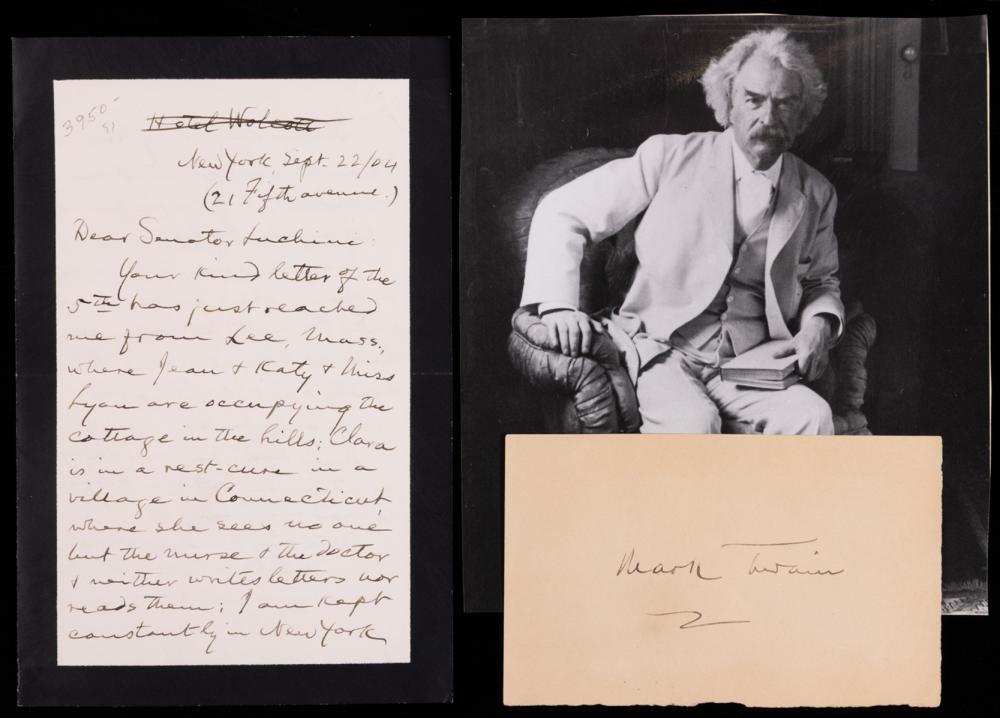 3950.-
91
Hotel Wolcott
New York, Sept. 22/04
(21 Fifth avenue.)
Dear Senator Luchini:
Your kind letter of the
5th has just reached
me from Lee, Mass,
where Jean & Katy & Miss
Lyon are occupying the
cottage in the hills; Clara
is in a rest-cure in a
village in Connecticut
where she sees no one
but the nurse & the doctor
& neither writes letters nor
reads them; I am kept
constantly in New York
Mark Twain